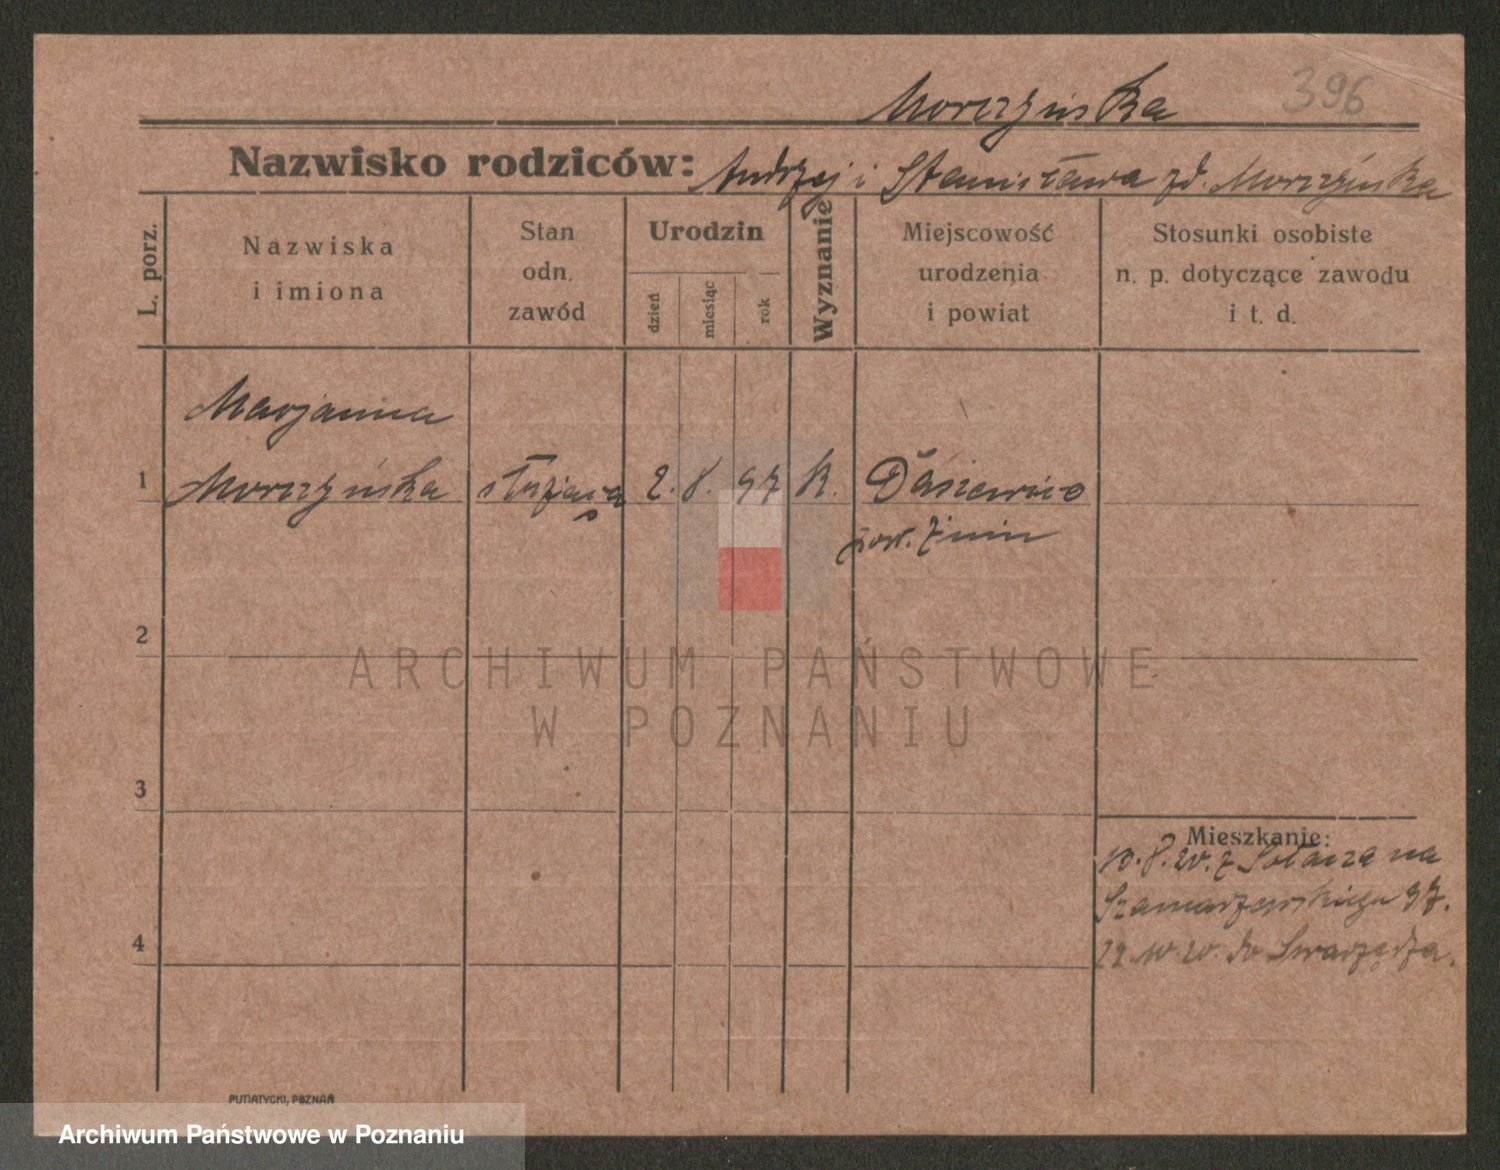 396
Morczyńska
Nazwisko rodziców: Andrzej i Stanisława zd. Morczyńska
L. porz.
Nazwiska
i imiona
Stan
odn.
zawód
Urodzin
dzień
miesiąc
rok
Wyznanie
Miejscowość
urodzenia
i powiat
Stosunki osobiste
n. p. dotyczące zawodu
i t. d.
Marjanna
1 Morczyńska służąca 2. 8. 97 K.
pow. Żnin
2
ARCHIWUM PAŃSTWOWE
W POZNANIU
3
4
Mieszkanie:
10.8.20. z Sołacza na
Szamarzewskiego 37.
22.10.20. do Swarzędza.
PUTIATYCKI, POZNAŃ
Archiwum Państwowe w Poznaniu